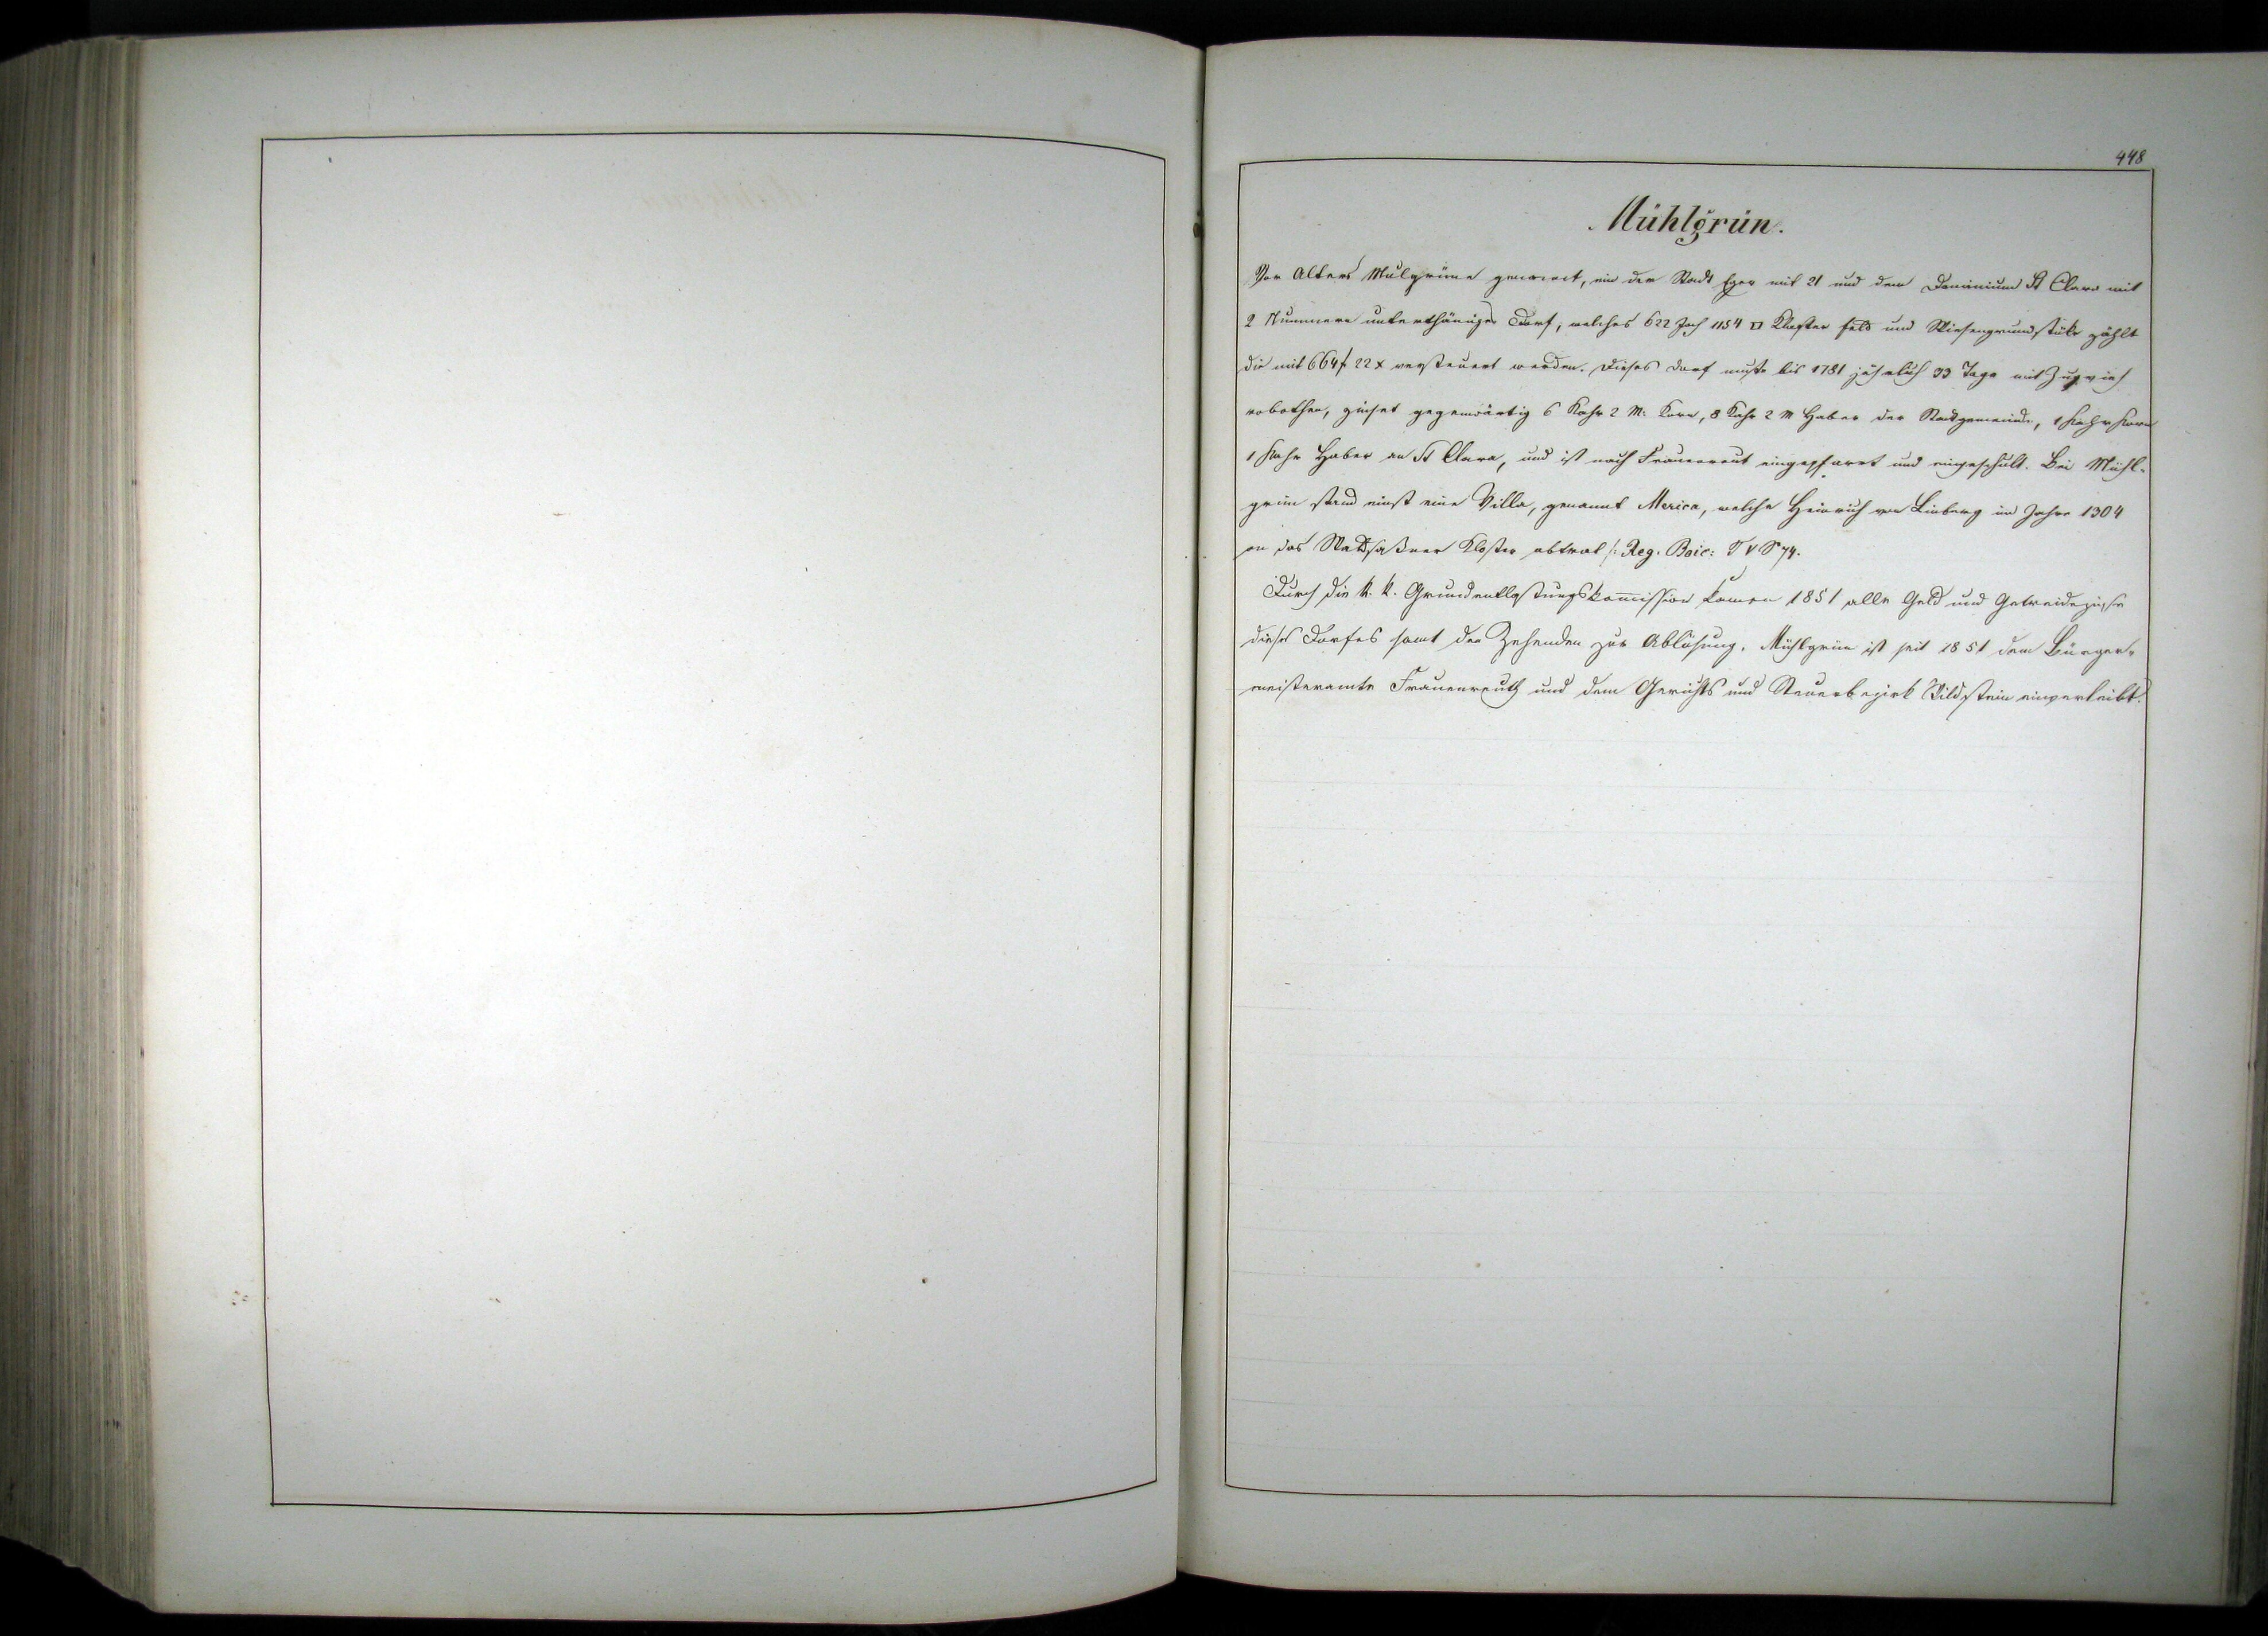 448
Mühlgrün.
Vor Alters Mulgrüne genannt, ein der Stadt Eger mit 21 und dem Dominium St Clara mit
2 Nummern unterthäniges Dorf, welches 622 Joch 1154 □ Klafter Feld und Wiesengrundstüke zählt
die mit 664 f 22 x versteuert werden. Dieses Dorf mußte bis 1781 jährlich 33 Tage mit Zugvieh
robothen, zinset gegenwärtig 6 Kahr 2 M. Korn, 8 Kahr 2 M Haber der Stadtgemeinde, 1 Kahr Korn
1 Kahr Haber an St Clara, und ist nach Frauenreut eingepfarrt und eingeschult. Bei Mühl-
grün stand einst eine Villa, genannt Merica, welche Heinrich von Linberg im Jahre 1304
an das Waldsaßner Kloster abtrat /: Reg. Boic: T V S 74.
Durch die k. k. Grundentlastungskom̅ission kamen 1851 alle Geld und Getreidezinse
dieses Dorfes samt den Zehenden zur Ablösung. Mühlgrün ist seit 1851 dem Bürger-
meisteramte Frauenreuth und dem Gerichts und Steuerbezirk Wildstein einverleibt.